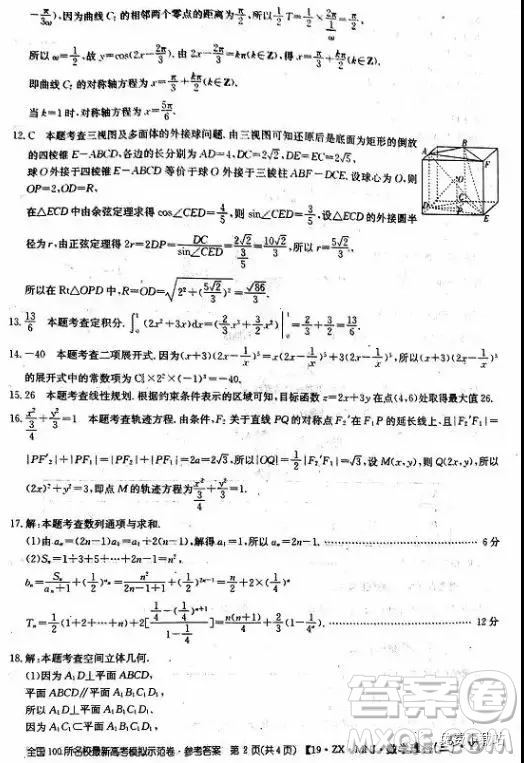 $-\frac{π}{3ω}$),因为曲线 C₇ 的相邻两个零点的距离为 $\frac{π}{2}$,所以 $\frac{1}{2}T=\frac{1}{2}×\frac{2π}{\frac{1}{ω}}=\frac{π}{2}$.
所以 $ω=\frac{1}{2}$,故 $y=\cos(2x-\frac{2π}{3})$.由 $2x-\frac{2π}{3}=kπ(k∈Z)$,得 $x=\frac{π}{3}+\frac{kπ}{2}(k∈Z)$.
即曲线 C₇ 的对称轴方程为 $x=\frac{π}{3}+\frac{kπ}{2}(k∈Z)$.
当 k=1 时,对称轴方程为 $x=\frac{5π}{6}$.
12.C 本题考查三视图及多面体的外接球问题.由三视图可知还原后是底面为矩形的倒放
的四棱锥 E-ABCD,各边的长分别为 AD=4,DC=2√2,DE=EC=2√5.
球 O 外接于四棱锥 E-ABCD 等价于球 O 外接于三棱柱 ABF-DCE.设球心为 O,则
OP=2,OD=R,
在△ECD 中由余弦定理求得 $\cos∠CED=\frac{4}{5}$,则 $\sin∠CED=\frac{3}{5}$,设△ECD 的外接圆半
径为 r,由正弦定理得 $2r=2DP=\frac{DC}{\sin∠CED}=\frac{2\sqrt{2}}{\frac{3}{5}}=\frac{10\sqrt{2}}{3}$,所以 $r=\frac{5\sqrt{2}}{3}$.
所以在 Rt△OPD 中,$R=OD=\sqrt{2^2+(\frac{5\sqrt{2}}{3})^2}=\frac{\sqrt{86}}{3}$.
13. $\frac{13}{6}$ 本题考查定积分.$\int_0^1(2x^2+3x)dx=(\frac{2}{3}x^3+\frac{3}{2}x^2)|_0^1=\frac{2}{3}+\frac{3}{2}=\frac{13}{6}$.
14.-40 本题考查二项展开式.因为 $(x+3)(2x-\frac{1}{x})^5=x(2x-\frac{1}{x})^5+3(2x-\frac{1}{x})^5$,所以 $(x+3)(2x-\frac{1}{x})^5$
的展开式中的常数项为 $C_5^3×2^2×(-1)^3=-40$.
15.26 本题考查线性规划.根据约束条件表示的区域可知,目标函数 z=2x+3y 在点(4,6)处取得最大值 26.
16. $\frac{x^2}{\frac{3}{4}}+\frac{y^2}{\frac{3}{4}}=1$ 本题考查轨迹方程.由条件,F₂ 关于直线 PQ 的对称点 F₂′在 F₁P 的延长线上,且|F₂′F₁|=
|PF′₂|+|PF₁|=|PF₂|+|PF₁|=2a=2√3,所以|OQ|=$\frac{1}{2}$|F₂′F₁|=√3,设 M(x,y),则 Q(2x,2y),所以
$(2x)^2+y^2=3$,即点 M 的轨迹方程为 $\frac{x^2}{\frac{3}{4}}+\frac{y^2}{\frac{3}{4}}=1$.
17.解:本题考查数列通项与求和.
(1)由 $a_n=(2n-1)a_1=a_1+2(n-1)$,解得 $a_1=1$,所以 $a_n=2n-1$. 6 分
(2)$S_n=1+3+5+\cdots+2n-1=n^2$,
$b_n=\frac{S_n}{a_n+1}+(\frac{1}{2})^{a_n}=\frac{n^2}{2n-1+1}+(\frac{1}{2})^{2n-1}=\frac{n}{2}+2×(\frac{1}{4})^n$
$T_n=\frac{1}{2}(1+2+\cdots+n)+2[\frac{\frac{1}{4}-(\frac{1}{4})^{n+1}}{1-\frac{1}{4}}]=\frac{n(n+1)}{4}+\frac{2}{3}(1-\frac{1}{4^n})$. 12 分
18.解:本题考查空间立体几何.
(1)因为 A₁D⊥平面 ABCD,
平面 ABCD∥平面 A₁B₁C₁D₁,
所以 A₁D⊥平面 A₁B₁C₁D₁,
因为 A₁C₁⊂平面 A₁B₁C₁D₁,
全国 100 所名校最新高考模拟示范卷·参考答案 第 2 页(共 4 页) 【19·ZX·MNJ·数学理
答案圈